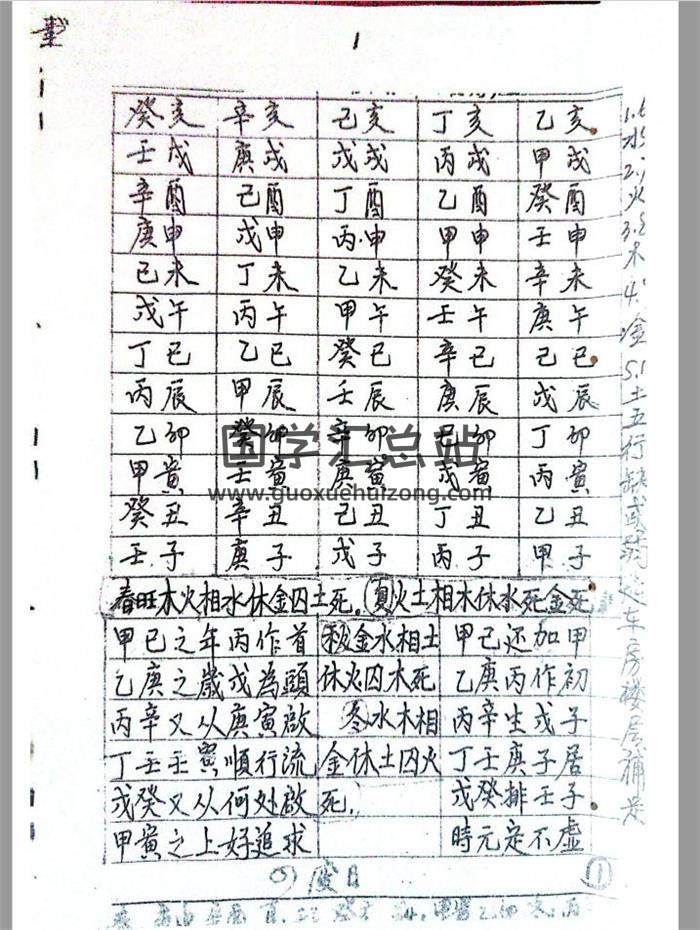 1
癸亥 辛亥 己亥 丁亥 乙亥
壬戌 庚戌 戊戌 丙戌 甲戌
辛酉 己酉 丁酉 乙酉 癸酉
庚申 戊申 丙申 甲申 壬申
己未 丁未 乙未 癸未 辛未
戊午 丙午 甲午 壬午 庚午
丁巳 乙巳 癸巳 辛巳 己巳
丙辰 甲辰 壬辰 庚辰 戊辰
乙卯 癸卯 辛卯 己卯 丁卯
甲寅 壬寅 庚寅 戊寅 丙寅
癸丑 辛丑 己丑 丁丑 乙丑
壬子 庚子 戊子 丙子 甲子
国学汇总站
www.guoxuehuizong.com
春旺木火相水休金囚土死。夏火土相木休水死金死
甲己之年丙作首
乙庚之歲戊為頭
丙辛又从庚寅啟
丁壬壬寅順行流
戊癸又从何处啟
甲寅之上好追求
秋金水相土
休火囚木死
冬水木相
金休土囚火
死。
甲己还加甲
乙庚丙作初
丙辛生戊子
丁壬庚子居
戊癸排壬子
時元定不虚
1
水2.火3.木4.金5.土五行缺或弱选车房楼层補是